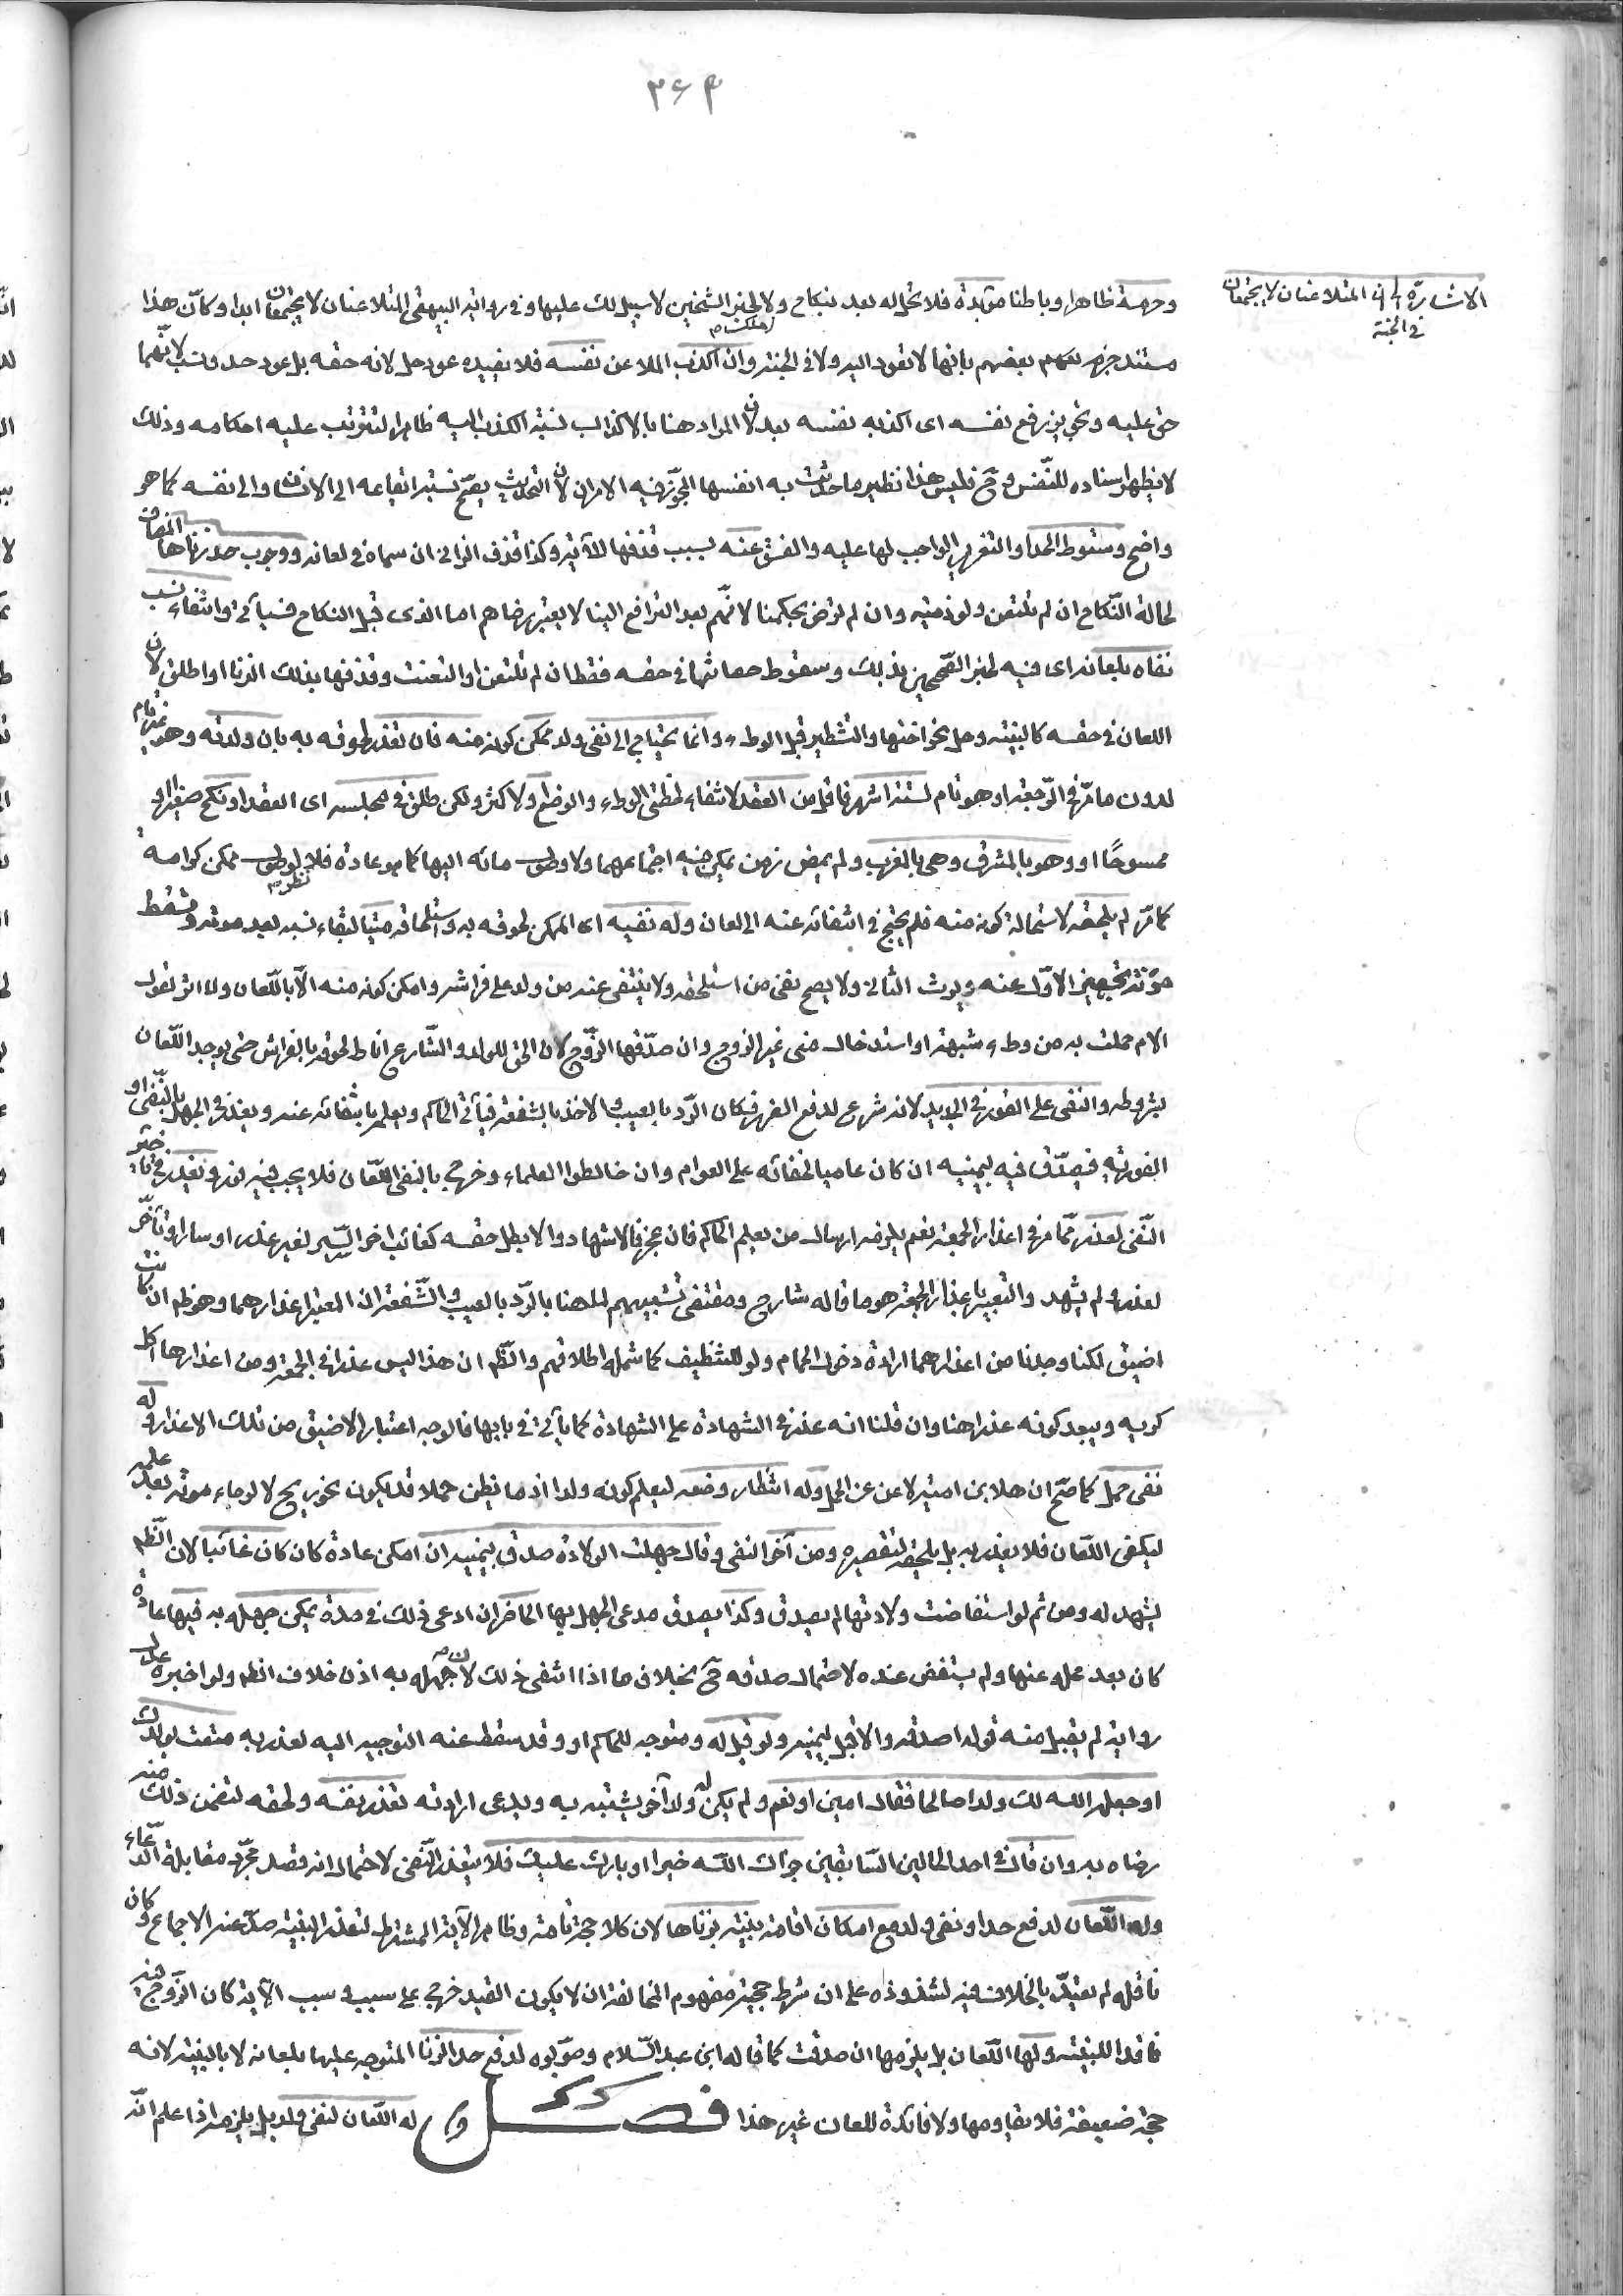 ٣٦٤
الاشارة الى ان المتلاعنان لا يجتمعان
في الجنة
وحرمة ظاهرا وباطنا مؤبدة فلا تحل له بعد بنكاح ولا ملك لخبر الشيخين لا سبيل لك عليها وفي رواية البيهقي المتلاعنان لا يجتمعان ابدا وكأن هذا
مستند جزم بعضهم بانها لا تعود اليه ولا في الجنة وان اكذب الملاعن نفسه فلا يفيده عود حل لانه حقه بل عود حد ونسب لانهما
حق عليه ويجوز رفع نفسه اى اكذبه نفسه بعد لان المراد هنا بالاكذاب نسبة الكذب اليه ظاهرا لتترتب عليه احكامه وذلك
لا يظهر اسناده للنفس وح فليس هذا نظير ما حدثت به انفسها المجوز فيه الامران لان التحديث يصح نسبة ايقاعه الى الانسان والى نفسه كما هو
واضح وسقوط الحد او التعزير الواجب لها عليه والفسق عنه بسبب قذفها للآية وكذا قذف الزاني ان سماه في لعانه ووجوب حد زناها المضاف
لحالة النكاح ان لم تلتعن ولو ذمية وان لم ترض بحكمنا لانهم بعد الترافع الينا لا يعتبر رضاهم اما الذى قبل النكاح فسيأتي وانتفاء نسب
نفاه بلعانه اى فيه لخبر الصحيحين بذلك وسقوط حصانتها في حقه فقط ان لم تلتعن او التعنت وقذفها بذلك الزنا او اطلق لان
اللعان في حقه كالبينة وحل نحو اختها والتشطير قبل الوطء وانما يحتاج الى نفى ولد ممكن كونه منه فان تعذر لحوقه به بان ولدته وهو غير تام
لدون ما مر في الرجعة او هو تام لستة اشهر فاقل من العقد لانتفاء لحظتى الوطء والوضع او لاكثر ولكن طلق في مجلسه اى العقد او نكح صغيرا او
ممسوحا او وهو بالمشرق وهى بالمغرب ولم يمض زمن يمكن فيه اجتماعهما ولا وصول مائه اليها كما هو عادة فلا نظر لوصول ممكن كرامة
كما مر لم يلحقه لاستحالة كونه منه فلم يحتج في انتفائه عنه الى لعان وله نفيه اى الممكن لحوقه به واستلحاقه ميتا لبقاء نسبه بعد موته وتسقط
مؤنة تجهيز الاول عنه ويرث الثاني ولا يصح نفى من استلحقه ولا ينتفى عنه من ولد على فراشه وامكن كونه منه الا باللعان ولا اثر لقول
الام حملت به من وطء شبهة او استدخال منى غير الزوج وان صدقها الزوج لان الحق للولد والشارع اناط لحوقه بالفراش حتى يوجد اللعان
بشروطه والنفى على الفور في الجديد لانه شرع لدفع الضرر فكان الرد بالعيب والاخذ بالشفعة فيأتي الحاكم ويعلمه بانتفائه عنه ويعذر في الجهل بالنفى او
الفورية فيصدق فيه بيمينه ان كان عاميا لخفائه على العوام وان خالطوا العلماء وخرج بالنفى اللعان فلا يجب فيه فور ويعذر في تاخير
النفى لعذر مما مر في اعذار الجمعة نعم يلزمه ارسال من يعلم الحاكم فان عجز فالاشهاد والا بطل حقه كغائب اخر السير لغير عذر او سار او تأخر
لعذر ولم يشهد والتعبير باعذار الجمعة هو ما قاله شارح ومقتضى تشبيههم لما هنا بالرد بالعيب والشفعة ان المعتبر اعذارهما وهو ظم ان كانت
اضيق لكنا وجدنا من اعذارهما ارادة دخول الحمام ولو للتنظيف كما شمله اطلاقهم والظم ان هذا ليس عذرا في الجمعة ومن اعذارها اكل
كريه ويبعد كونه عذرا هنا وان قلنا انه عذر في الشهادة على الشهادة كما يأتي في بابها فالوجه اعتبار الاضيق من تلك الاعذار وله
نفى حمل كما صح ان هلال بن امية لاعن عن الحمل وله انتظار وضعه ليعلم كونه ولدا اذ ما يظن حملا قد يكون نحو ريح لا لرجاء موته بعد علمه
ليكفى اللعان فلا يعذر به بل يلحقه لتقصيره ومن أخر النفى وقال جهلت الولادة صدق بيمينه ان امكن عادة كان كان غائبا لان الظم
يشهد له ومن ثم لو استفاضت ولادتها لم يصدق وكذا يصدق مدعى الجهل بها الحاضر ان ادعى ذلك في مدة يمكن جهله به فيها عادة
كان بعد محله عنها ولم يستفض عنده لاحتمال صدقه ح بخلاف ما اذا انتفى ذلك لان جهله به اذن خلاف الظم ولو اخبره عدل
رواية لم يقبل منه قوله لم اصدقه والا قبل بيمينه ولو قيل له وهو متوجه للحاكم او وقد سقط عنه التوجه اليه لعذر به متعت بولدك
او جعله الله لك ولدا صالحا فقال امين او نعم ولم يكن له ولد آخر يشتبه به ويدعى ارادته تعذر نفيه ولحقه لتضمن ذلك منه
رضاه به وان قال في احد الحالين السابقين جزاك الله خيرا او بارك عليك فلا يتعذر النفى لاحتمال انه قصد مجرد مقابلة الدعاء
وله اللعان لدفع حد او نفى ولد مع امكان اقامة بينة بزناها لان كلا حجة تامة وظاهر الآية المشترط لتعذر البينة صد عنه الاجماع وكان
ناقله لم يعتد بالخلاف فيه لشذوذه على ان شرط حجية مفهوم المخالفة ان لا يكون القيد خرج على سبب وسبب الآية كان الزوج فيه
فاقدا للبينة ولها اللعان بل يلزمها ان صدقت كما قاله ابن عبد السلام وصوبوه لدفع حد الزنا المتوجه عليها بلعانه لا بالبينة لانه
حجة ضعيفة فلا يقاومها ولا فائدة للعان غير هذا فصل له اللعان لنفى ولد بل يلزمه اذا علم انه